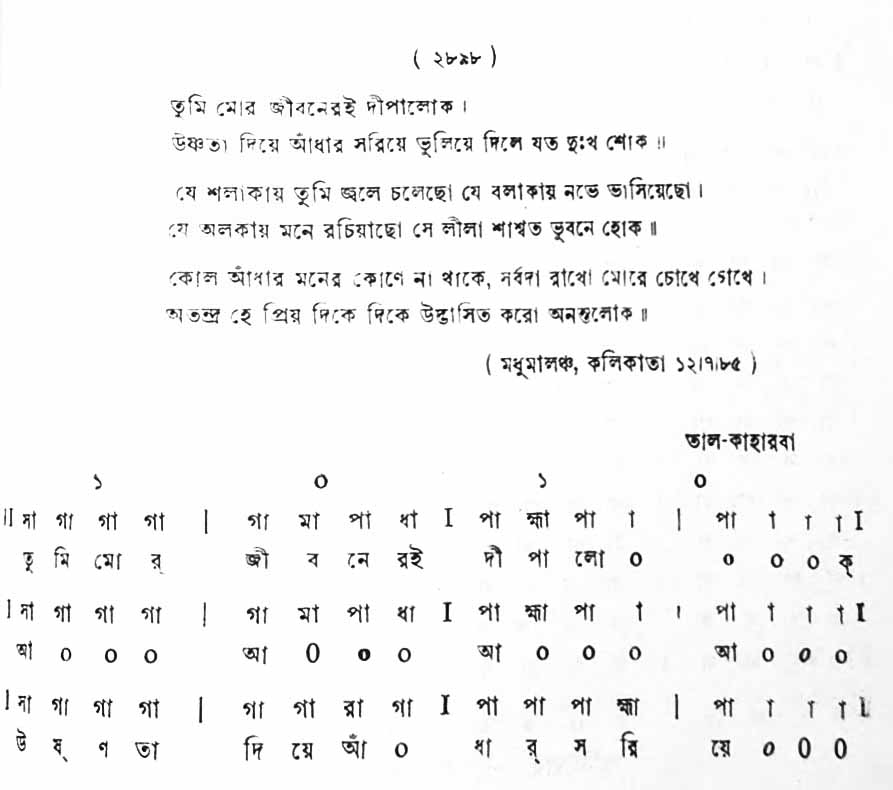 ( ২৮৯৮ )
তুমি মোর জীবনেরই দীপালোক ।
উষ্ণতা দিয়ে আঁধার সরিয়ে ভুলিয়ে দিলে যত দুঃখ শোক ॥
যে শলাকায় তুমি জ্বলে চলেছো যে বলাকায় নভে ভাসিয়েছো ।
যে অলকায় মনে রচিয়াছো সে লীলা শাশ্বত ভুবনে হোক ॥
কোল আঁধার মনের কোণে না থাকে, সর্বদা রাখো মোরে চোখে চোখে ।
অতন্দ্র হে প্রিয় দিকে দিকে উদ্ভাসিত করো অনন্তলোক ॥
( মধুমালঞ্চ, কলিকাতা ১২।৭।৮৫ )
তাল-কাহারবা
১ ০ ১ ০
II সা গা গা গা | গা মা পা ধা I পা হ্মা পা া | পা া া া I
তু মি মো র্ জী ব নে রই দী পা লো ০ ০ ০ ০ ক্
I সা গা গা গা | গা মা পা ধা I পা হ্মা পা া । পা া া া I
আ ০ ০ ০ আ ০ ০ ০ আ ০ ০ ০ আ ০ ০ ০
I সা গা গা গা | গা গা রা গা I পা পা পা হ্মা | পা া া া I
উ ষ্ ণ তা দি য়ে আঁ ০ ধা র্ স রি য়ে ০ ০ ০